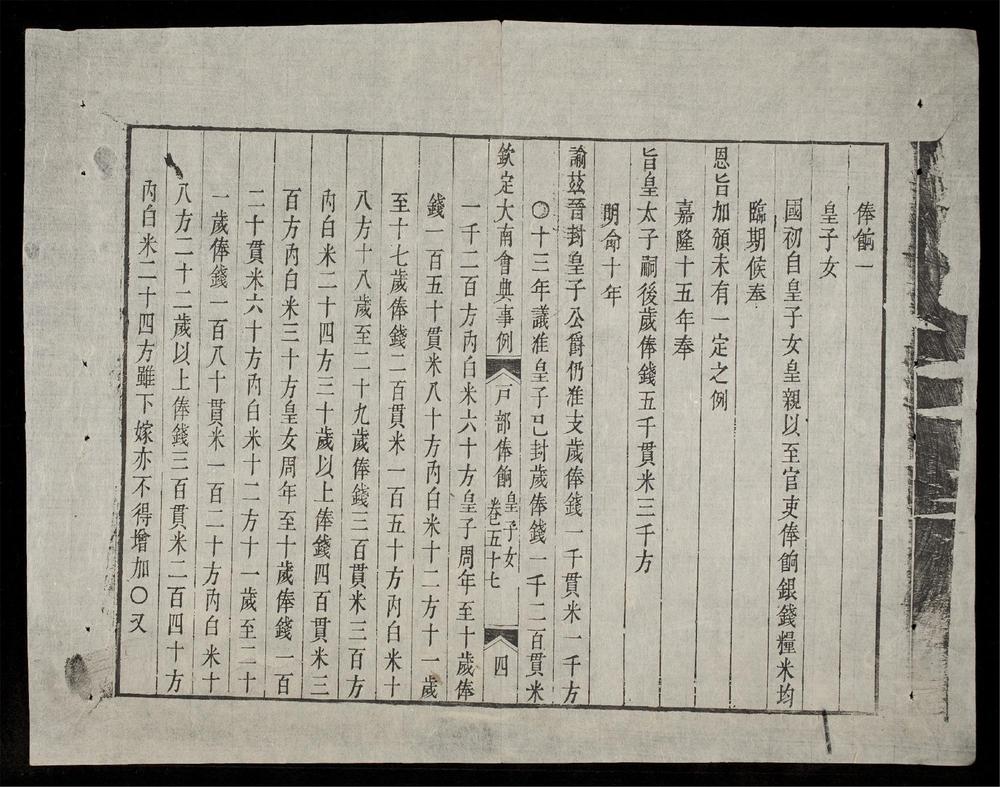 俸餉一
皇子女
國初自皇子女皇親以至官吏俸餉銀錢糧米均
臨期候奉
恩旨加頒未有一定之例
嘉隆十五年奉
旨皇太子嗣後歲俸錢五千貫米三千方
明命十年
諭茲晉封皇子公爵仍准支歲俸錢一千貫米一千方
〇十三年議准皇子已封歲俸錢一千二百貫米
欽定大南會典事例
戸部俸餉
皇子女
卷五十七
四
一千二百方內白米六十方皇子周年至十歲俸
錢一百五十貫米八十方內白米十二方十一歲
至十七歲俸錢二百貫米一百五十方內白米十
八方十八歲至二十九歲俸錢三百貫米三百方
內白米二十四方三十歲以上俸錢四百貫米三
百方內白米三十方皇女周年至十歲俸錢一百
二十貫米六十方內白米十二方十一歲至二十
一歲俸錢一百八十貫米一百二十方內白米十
八方二十二歲以上俸錢三百貫米二百四十方
內白米二十四方雖下嫁亦不得增加〇又